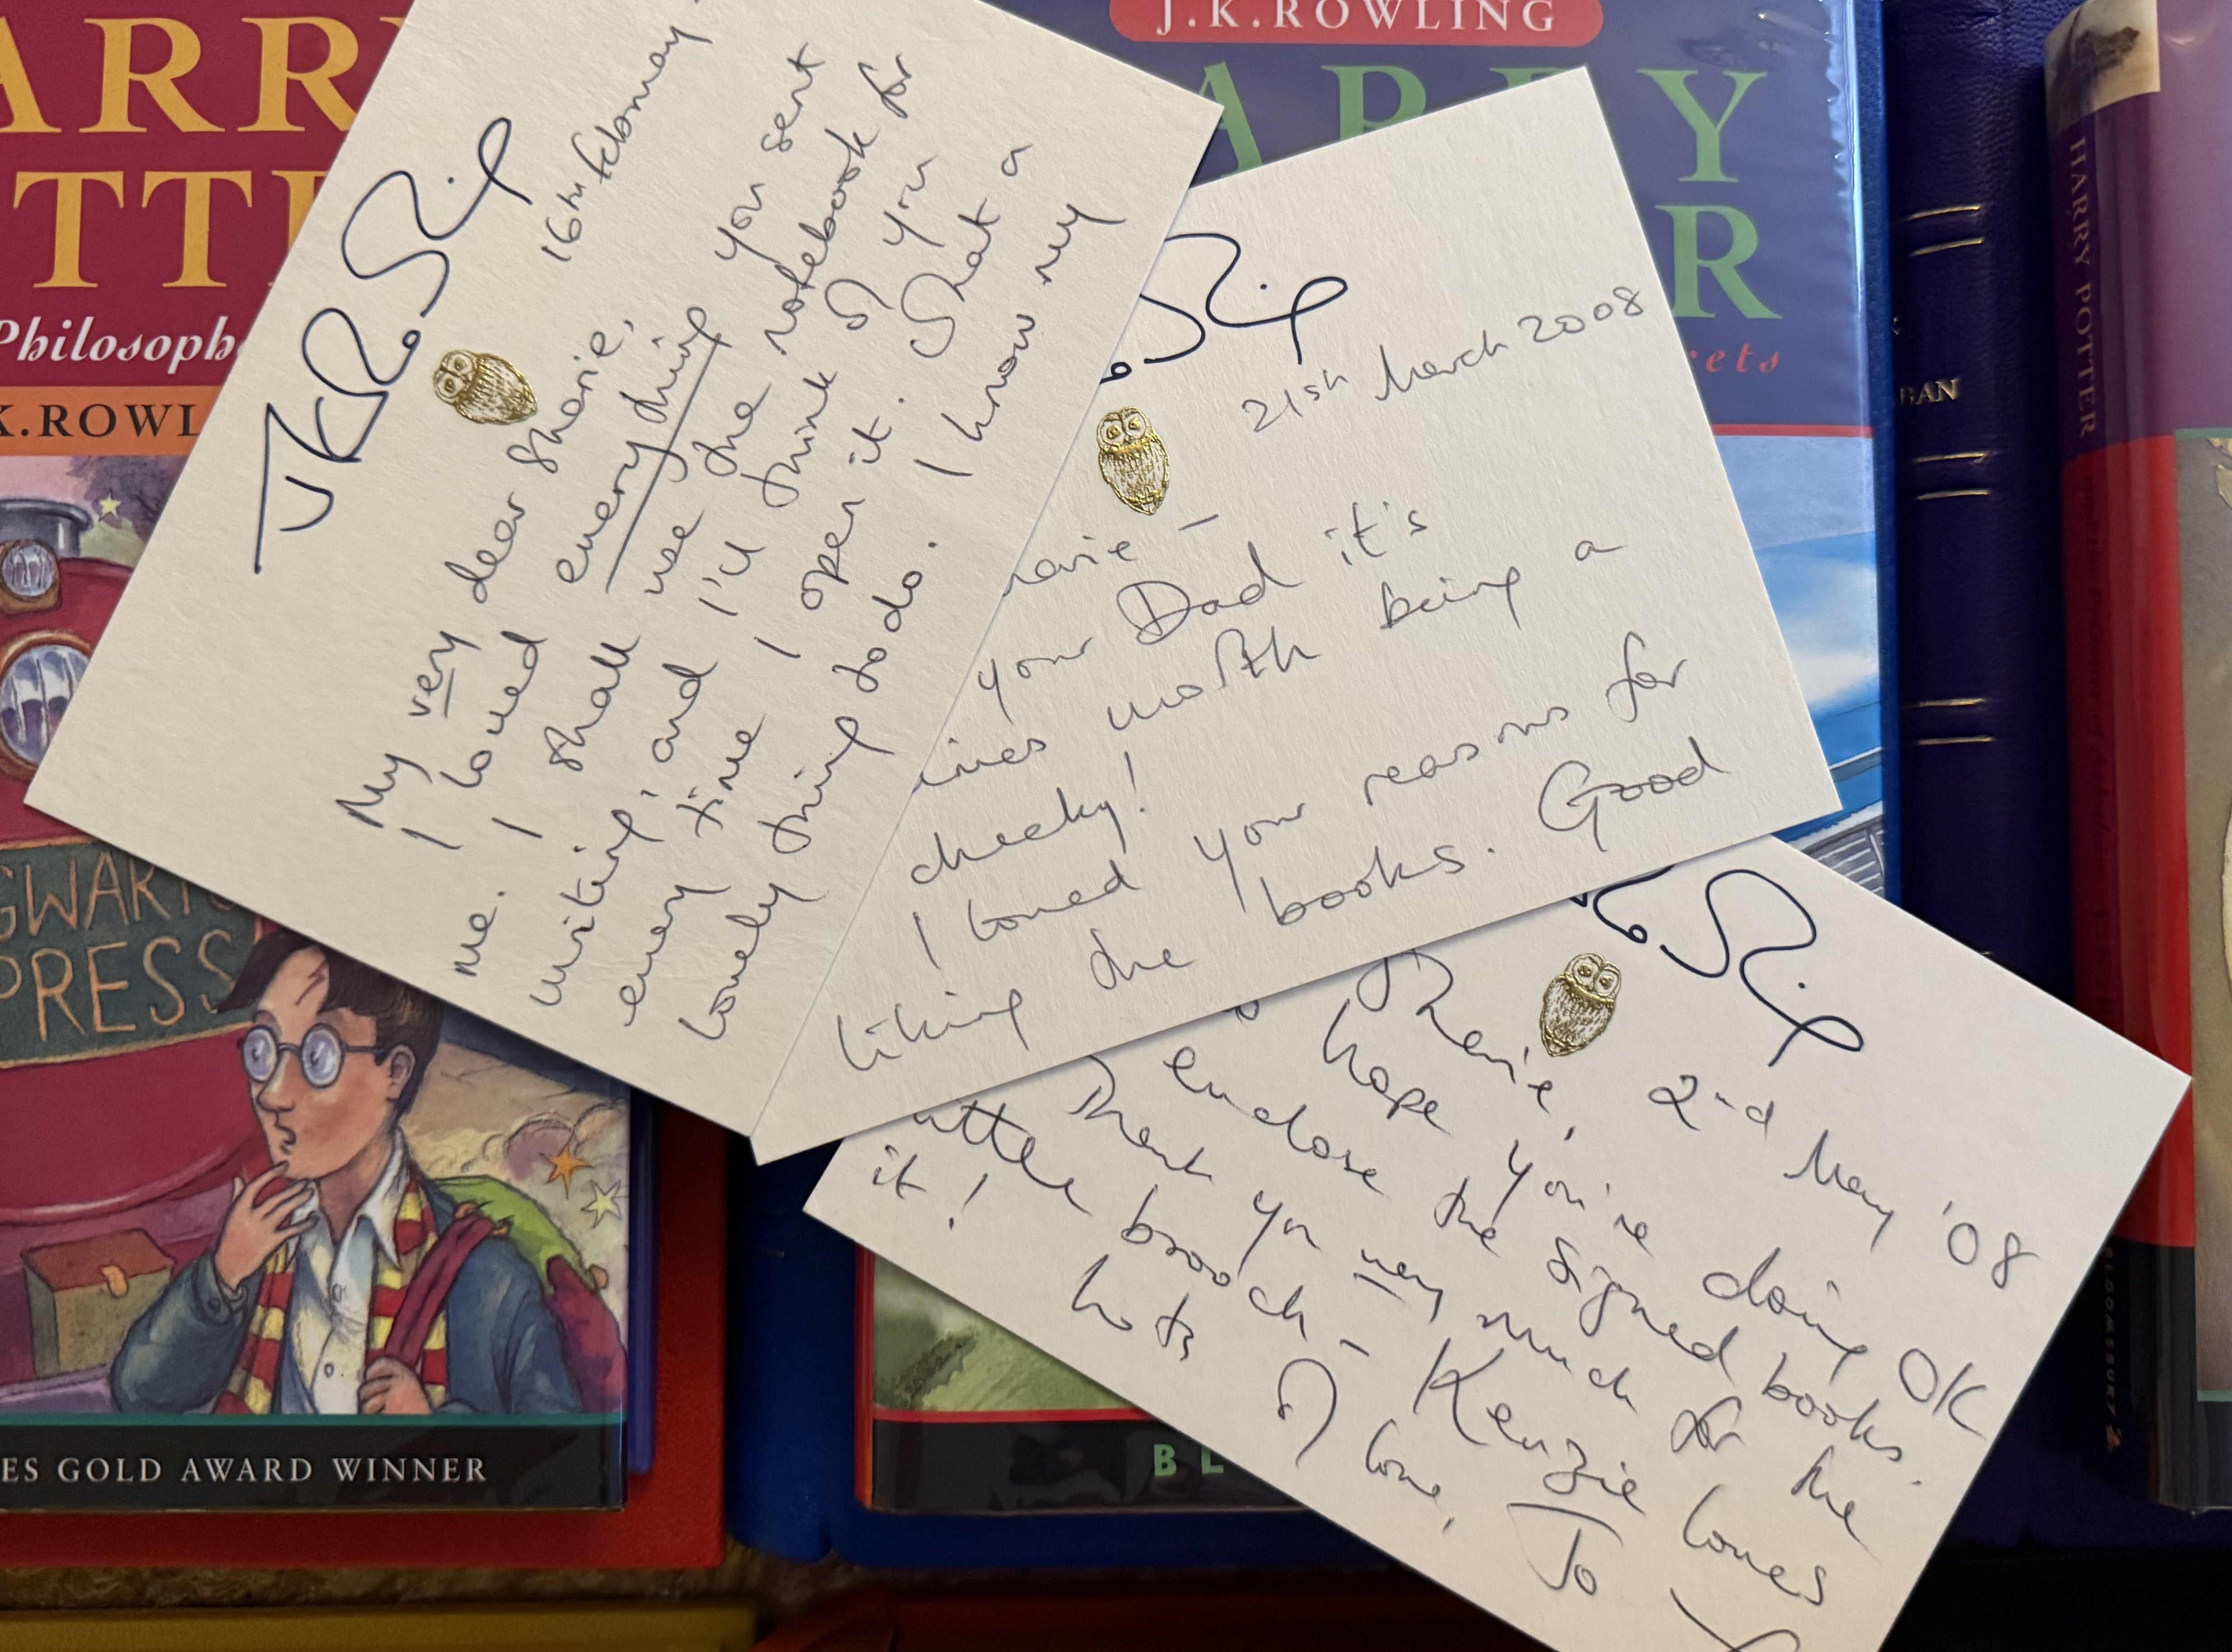 ARRY
TTE
Philosophe
K.ROWL
GWARTS
PRESS
ES GOLD AWARD WINNER
J.K.ROWLING
ARRY
R
crets
BAN
HARRY POTTER
BLOOMSBURY
BL
JKRowling
16th February
My very dear Sharie,
I loved everything you sent
me. I shall use the notebook for
writing, and I'll think of you
every time I open it. What a
lovely thing to do. I know my
21st March 2008
harie –
your Dad it's
worth being a
cheeky!
I loved your reasons for
liking the books. Good
2nd May '08
Sharie,
hope you're doing OK
enclose the signed books.
Thank you very much for the
little brooch – Kenzie loves
it!
lots of love,
Jo